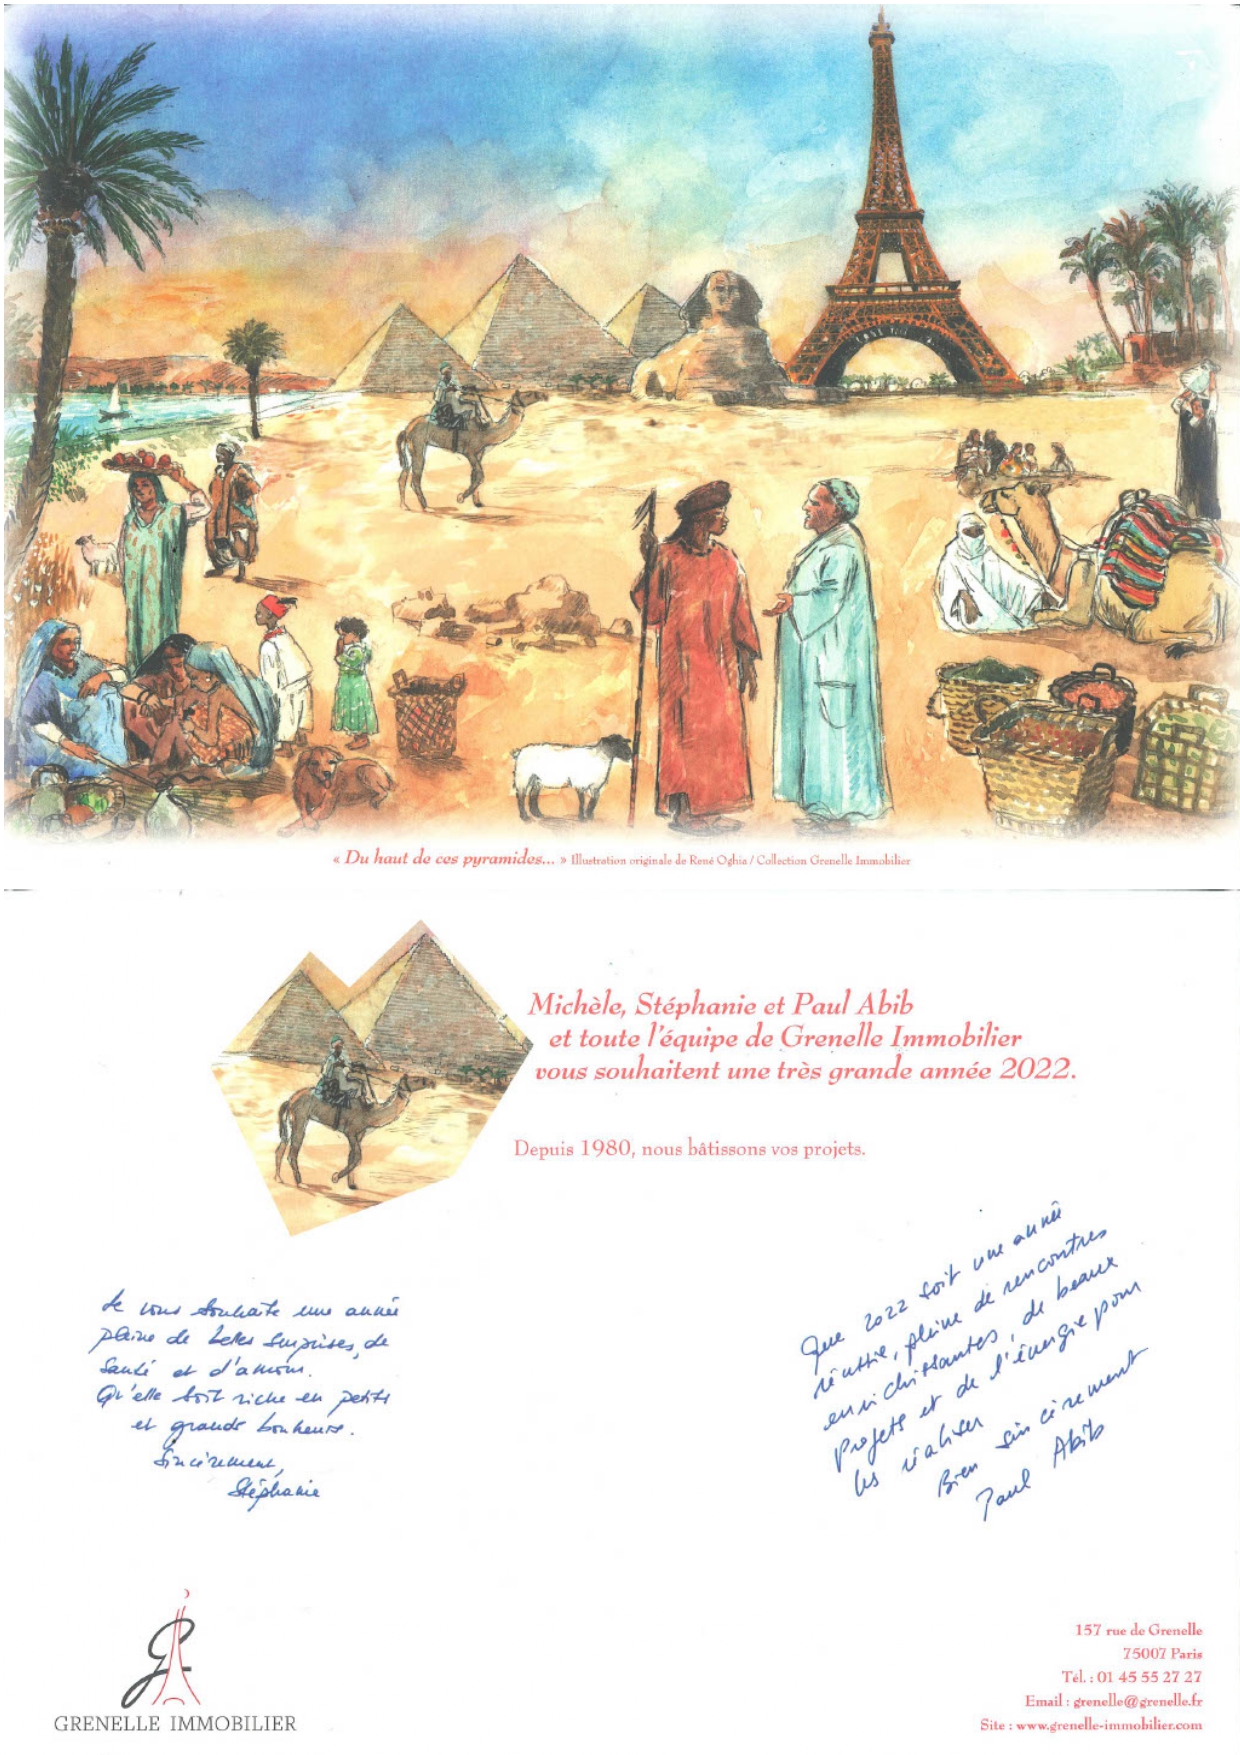 « Du haut de ces pyramides... » Illustration originale de René Oghia / Collection Grenelle Immobilier
Michèle, Stéphanie et Paul Abib
et toute l'équipe de Grenelle Immobilier
vous souhaitent une très grande année 2022.
Depuis 1980, nous bâtissons vos projets.
Je vous souhaite une année
pleine de belles surprises, de
santé et d'amour.
Qu'elle soit riche en petits
et grands bonheurs.
Sincèrement,
Stéphanie
Que 2022 soit une année
réussie, pleine de rencontres
enrichissantes, de beaux
projets et de l'énergie pour
les réaliser
Bien sincèrement
Paul Abib
GRENELLE IMMOBILIER
157 rue de Grenelle
75007 Paris
Tél. : 01 45 55 27 27
Email : grenelle@grenelle.fr
Site : www.grenelle-immobilier.com